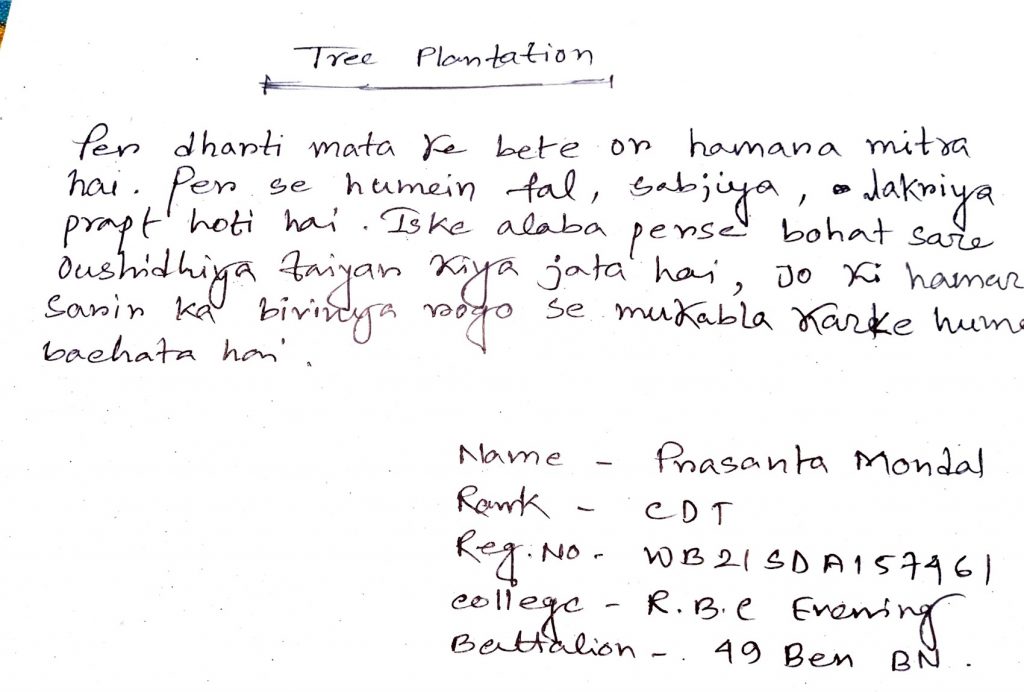 Tree Plantation
Per dharti mata ke bete or hamara mitra
hai. Per se humein fal, sabjiya, lakriya
prapt hoti hai. Iske alaba perse bohat sare
Oushidhiya taiyar kiya jata hai, Jo ki hamar
sarir ka birinya rogo se mukabla karke hume
bachata hai.
Name - Prasanta Mondal
Rank - CDT
Reg. No. WB21SDA157461
college - R.B.C Evening
Battalion - . 49 Ben BN.